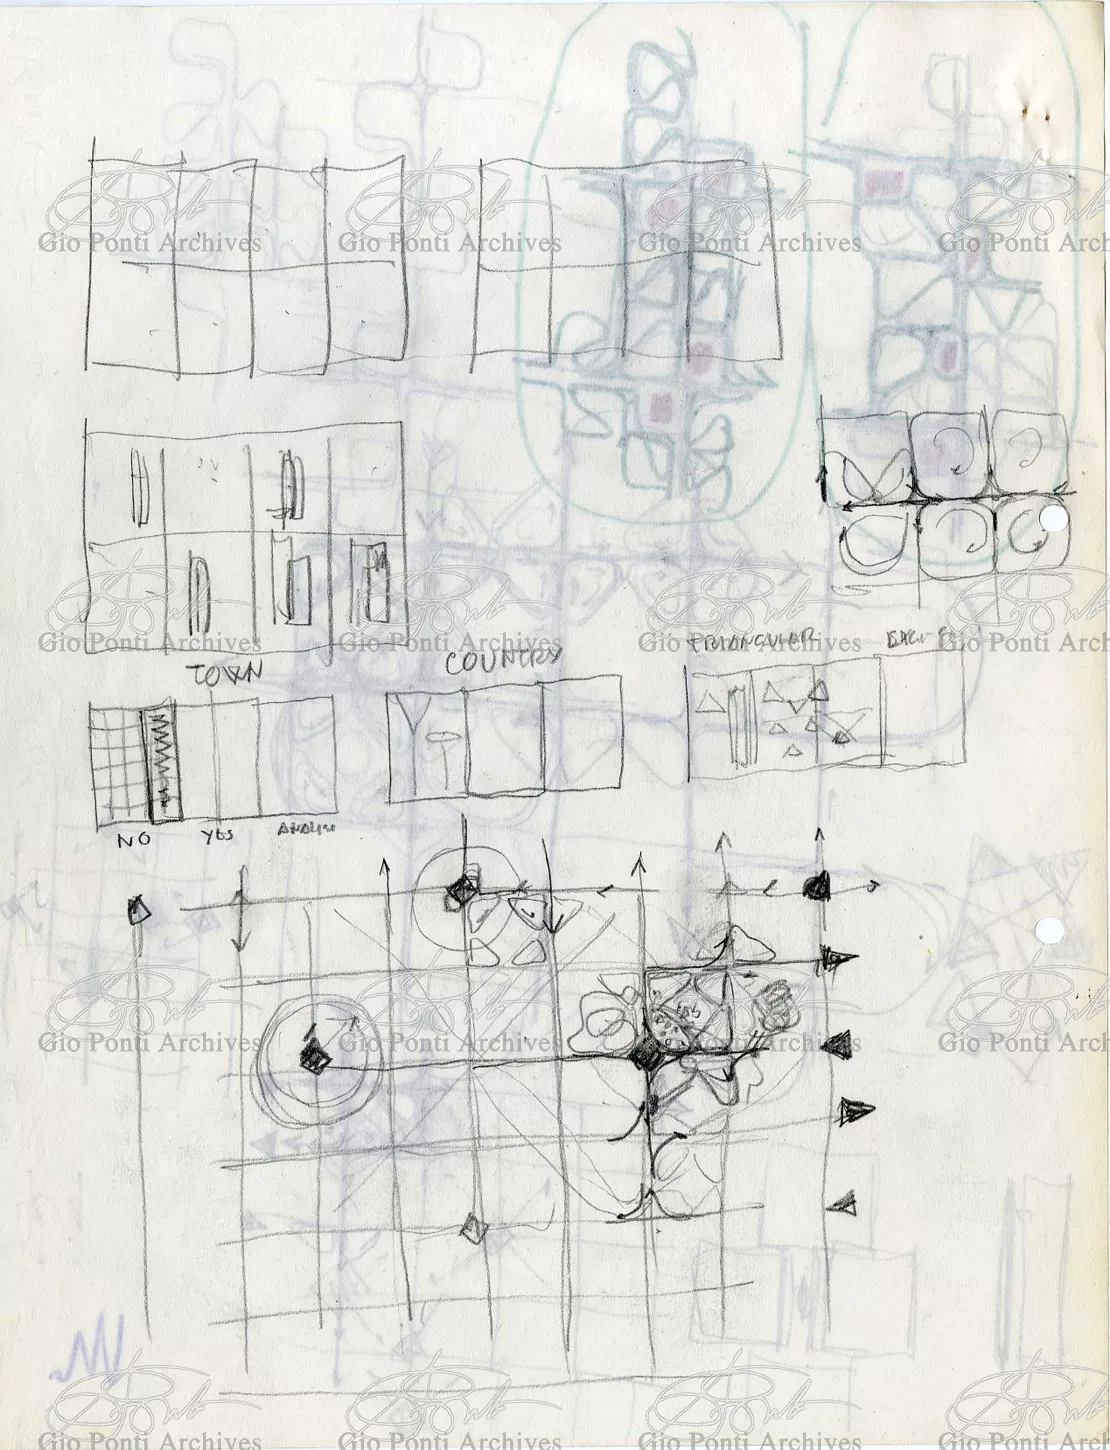 Gio Ponti Archives Gio Ponti Archives Gio Ponti Archives Gio Ponti Arch
Gio Ponti Archives Gio Ponti Archives Gio Ponti Archives Gio Ponti Arch
TRIANGULAR
TOWN COUNTRY
NO YES
Gio Ponti Archives Gio Ponti Archives Gio Ponti Archives Gio Ponti Arch
Gio Ponti Archives Gio Ponti Archives Gio Ponti Archives Gio Ponti Arch